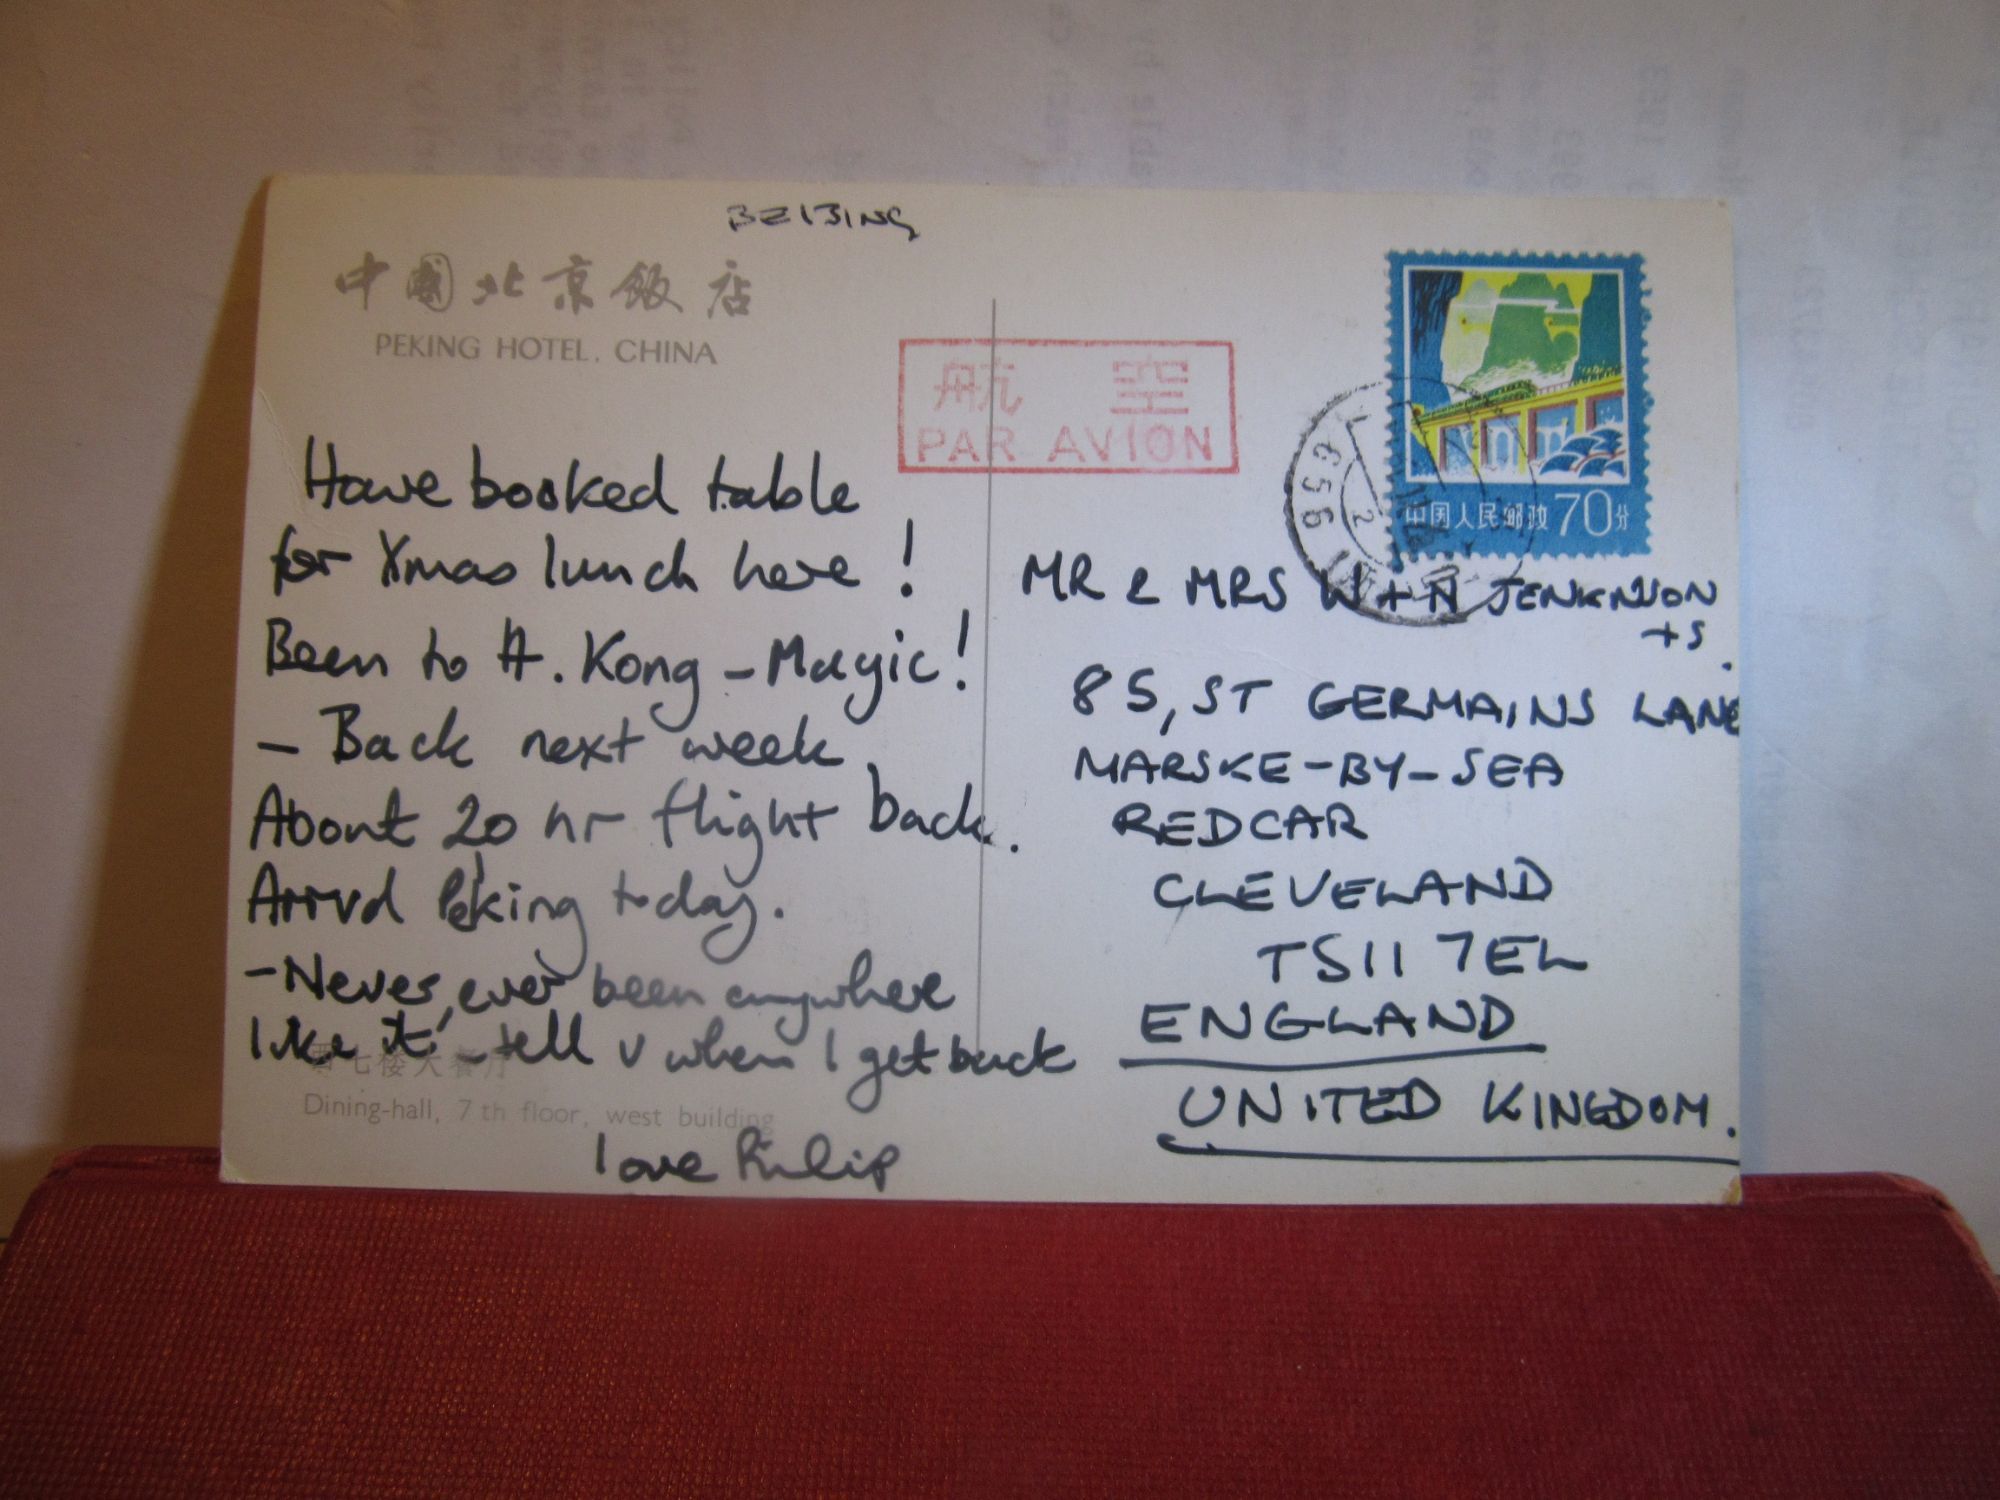 BEIJING
中國北京飯店
PEKING HOTEL. CHINA
航空
PAR AVION
中国人民邮政 70分
Have booked table
for Xmas lunch here!
Been to H. Kong – Magic!
– Back next week
About 20 hr flight back.
Arrvd Peking today.
– Never, ever been anywhere
like it – tell u when I get back
七楼大餐厅
Dining-hall, 7th floor, west building
love Philip
MR & MRS W + N JENKINSON
+ S.
85, ST GERMAINS LANE
MARSKE-BY-SEA
REDCAR
CLEVELAND
TS11 7EL
ENGLAND
UNITED KINGDOM.